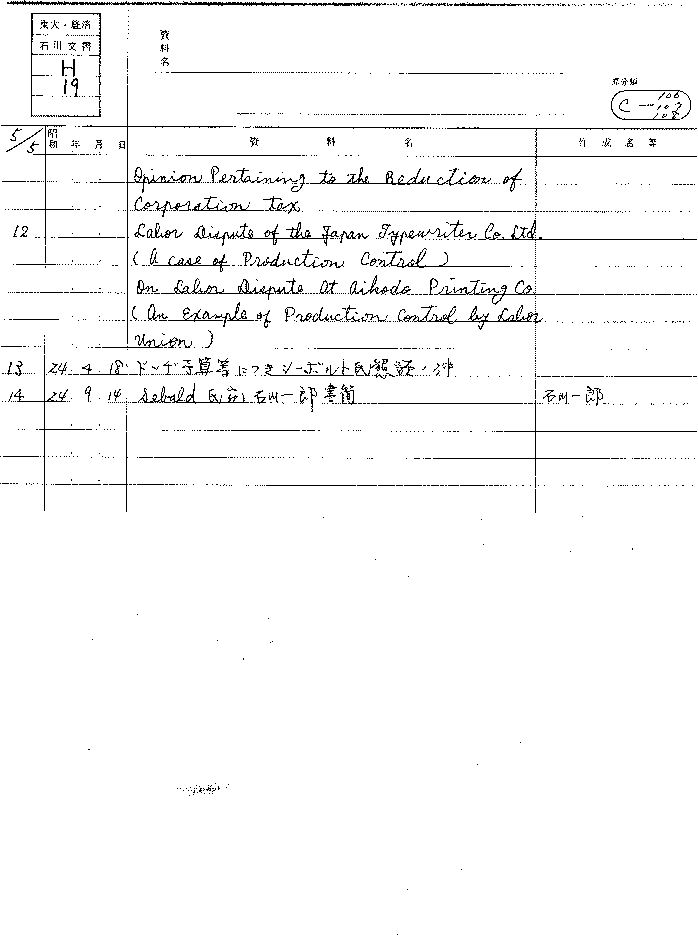 東大・経済
石川文書
H
19
資料名
C—106
107
108
5/5
昭和 年 月 日 資料名 作成者等
Opinion Pertaining to the Reduction of
Corporation tax
12 Labor Dispute of the Japan Typewriter Co. Ltd.
(A case of Production Control)
On Labor Dispute At Aikodo Printing Co
(An Example of Production Control by Labor
Union)
13 24 4 18 ドッヂ予算等につきシーボルト氏懇談ノ件
14 24 9 14 Sebald 氏宛 石川一郎書簡 石川一郎